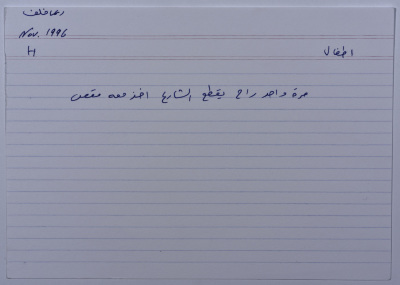 رعا خلف
Nov. 1996
H
اطفال
مرة واحد راح يقطع الشارع اخذ معه مقص